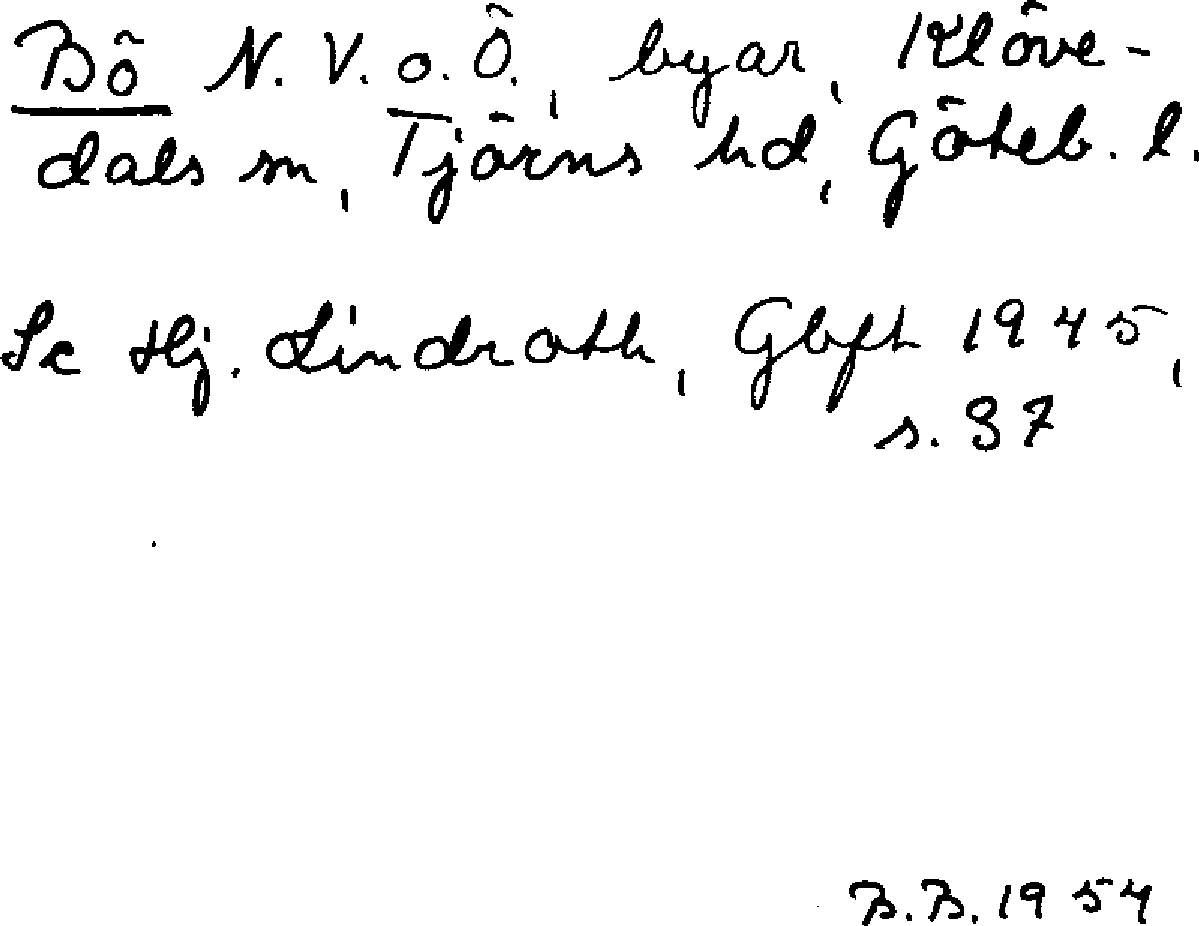 Bö N. V. o. Ö., byar, Klöve-
dals sn, Tjörns hd, Göteb. l.
Se Hj. Lindroth, Gbft 1945,
s. 37
B.B. 1954